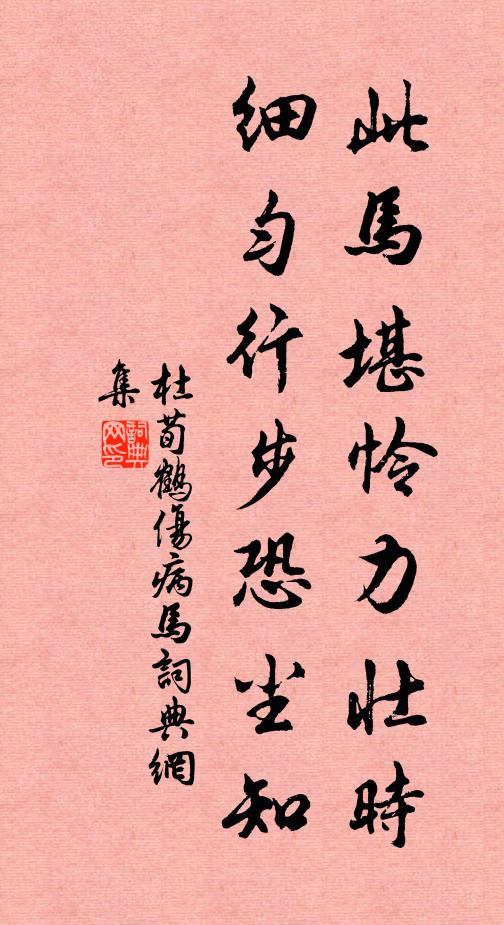 此馬堪怜力壮時
细匀行步恐尘知
杜荀鶴傷病馬詞典網
集
詞典
网印